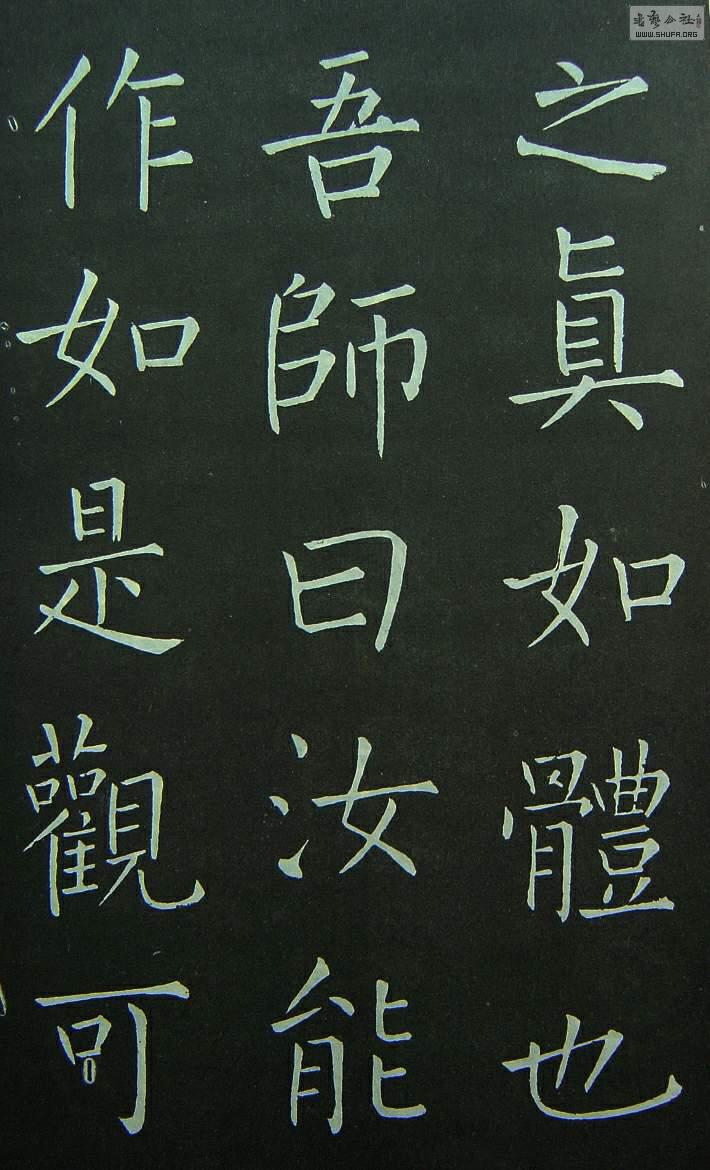 之真如體也
吾師曰汝能
作如是觀可
书艺公社
WWW.SHUFA.ORG